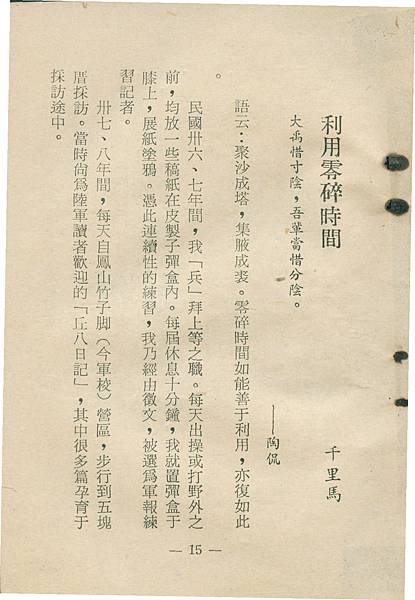 利用零碎時間
千里馬
大禹惜寸陰，吾輩當惜分陰。
——陶侃
語云：聚沙成塔，集腋成裘。零碎時間如能善于利用，亦復如此
。
民國卅六、七年間，我「兵」拜上等之職。每天出操或打野外之
前，均放一些稿紙在皮製子彈盒內。每屆休息十分鐘，我就置彈盒于
膝上，展紙塗鴉。憑此連續性的練習，我乃經由徵文，被選爲軍報練
習記者。
卅七、八年間，每天自鳳山竹子脚（今軍校）營區，步行到五塊
厝採訪。當時尚爲陸軍讀者歡迎的「丘八日記」，其中很多篇孕育于
採訪途中。
— 15 —